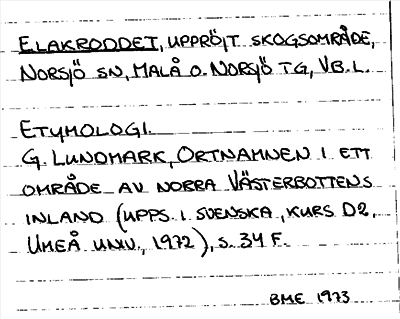 ELAKRODDET, UPPRÖJT SKOGSOMRÅDE,
NORSJÖ SN, MALÅ O. NORSJÖ TG, VB. L.
ETYMOLOGI.
G. LUNDMARK, ORTNAMNEN I ETT
OMRÅDE AV NORRA VÄSTERBOTTENS
INLAND (UPPS. I SVENSKA, KURS D2,
UMEÅ UNIV., 1972), S. 34 F.
BME 1973